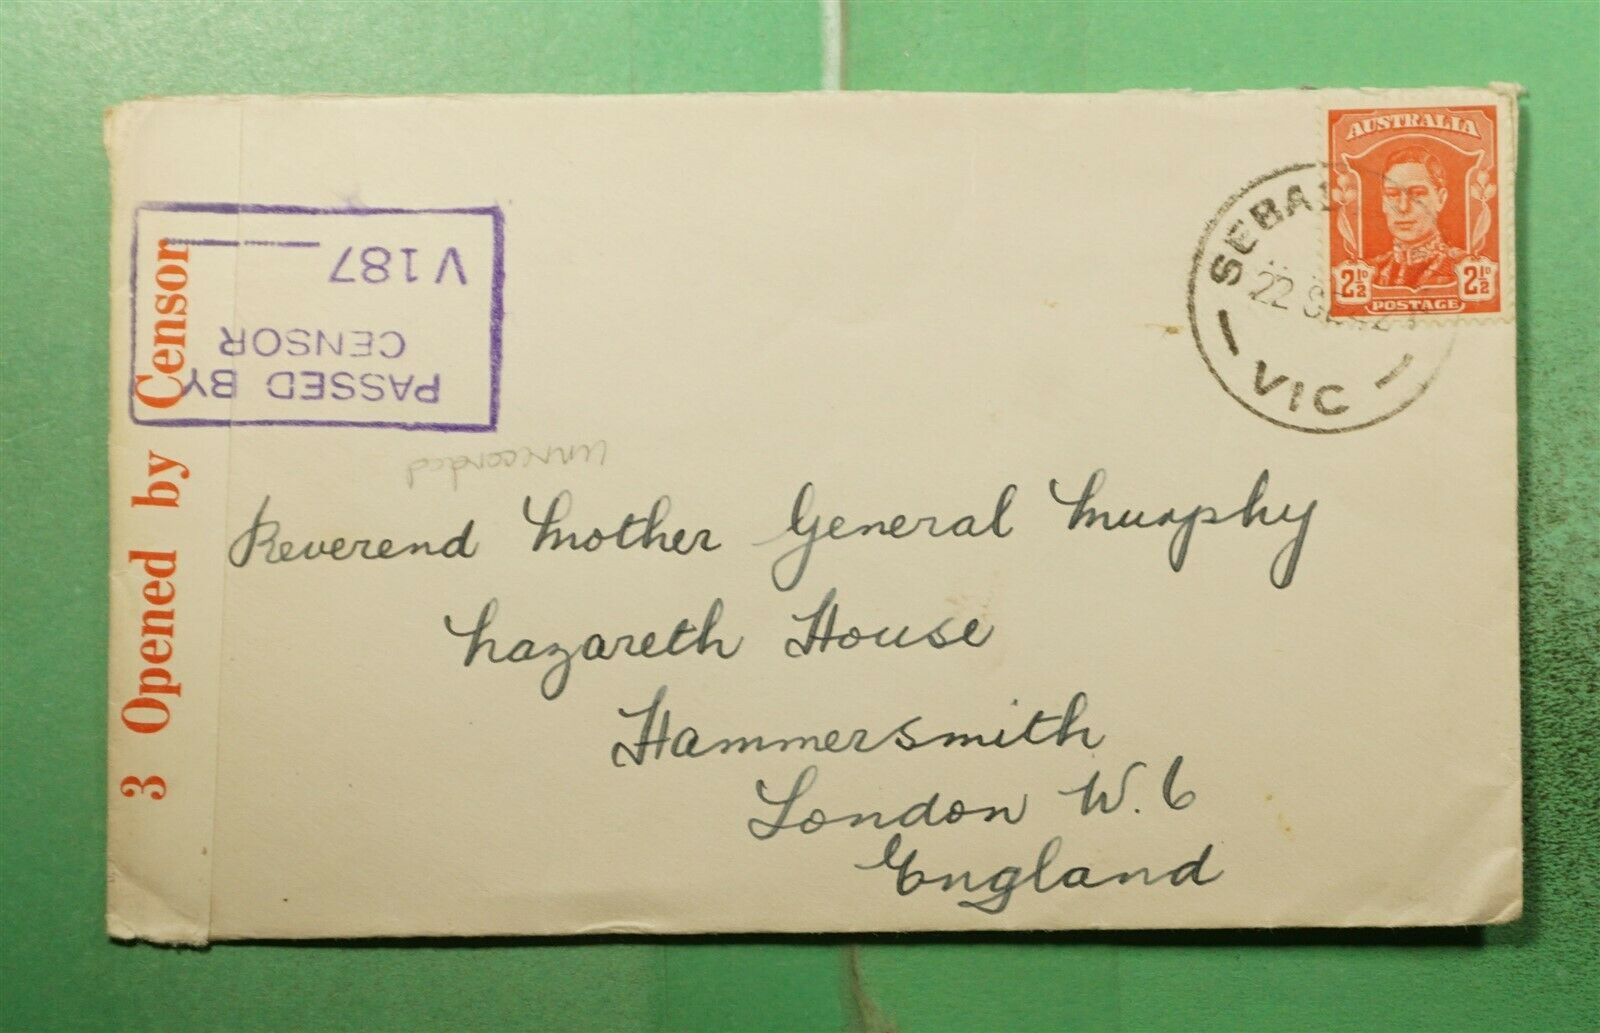 AUSTRALIA
2½D 2½D
POSTAGE
22 SE 42
VIC
PASSED BY
CENSOR
V 187
3 Opened by Censor
unrecorded
Reverend Mother General Murphy
Nazareth House
Hammersmith
London W. 6
England